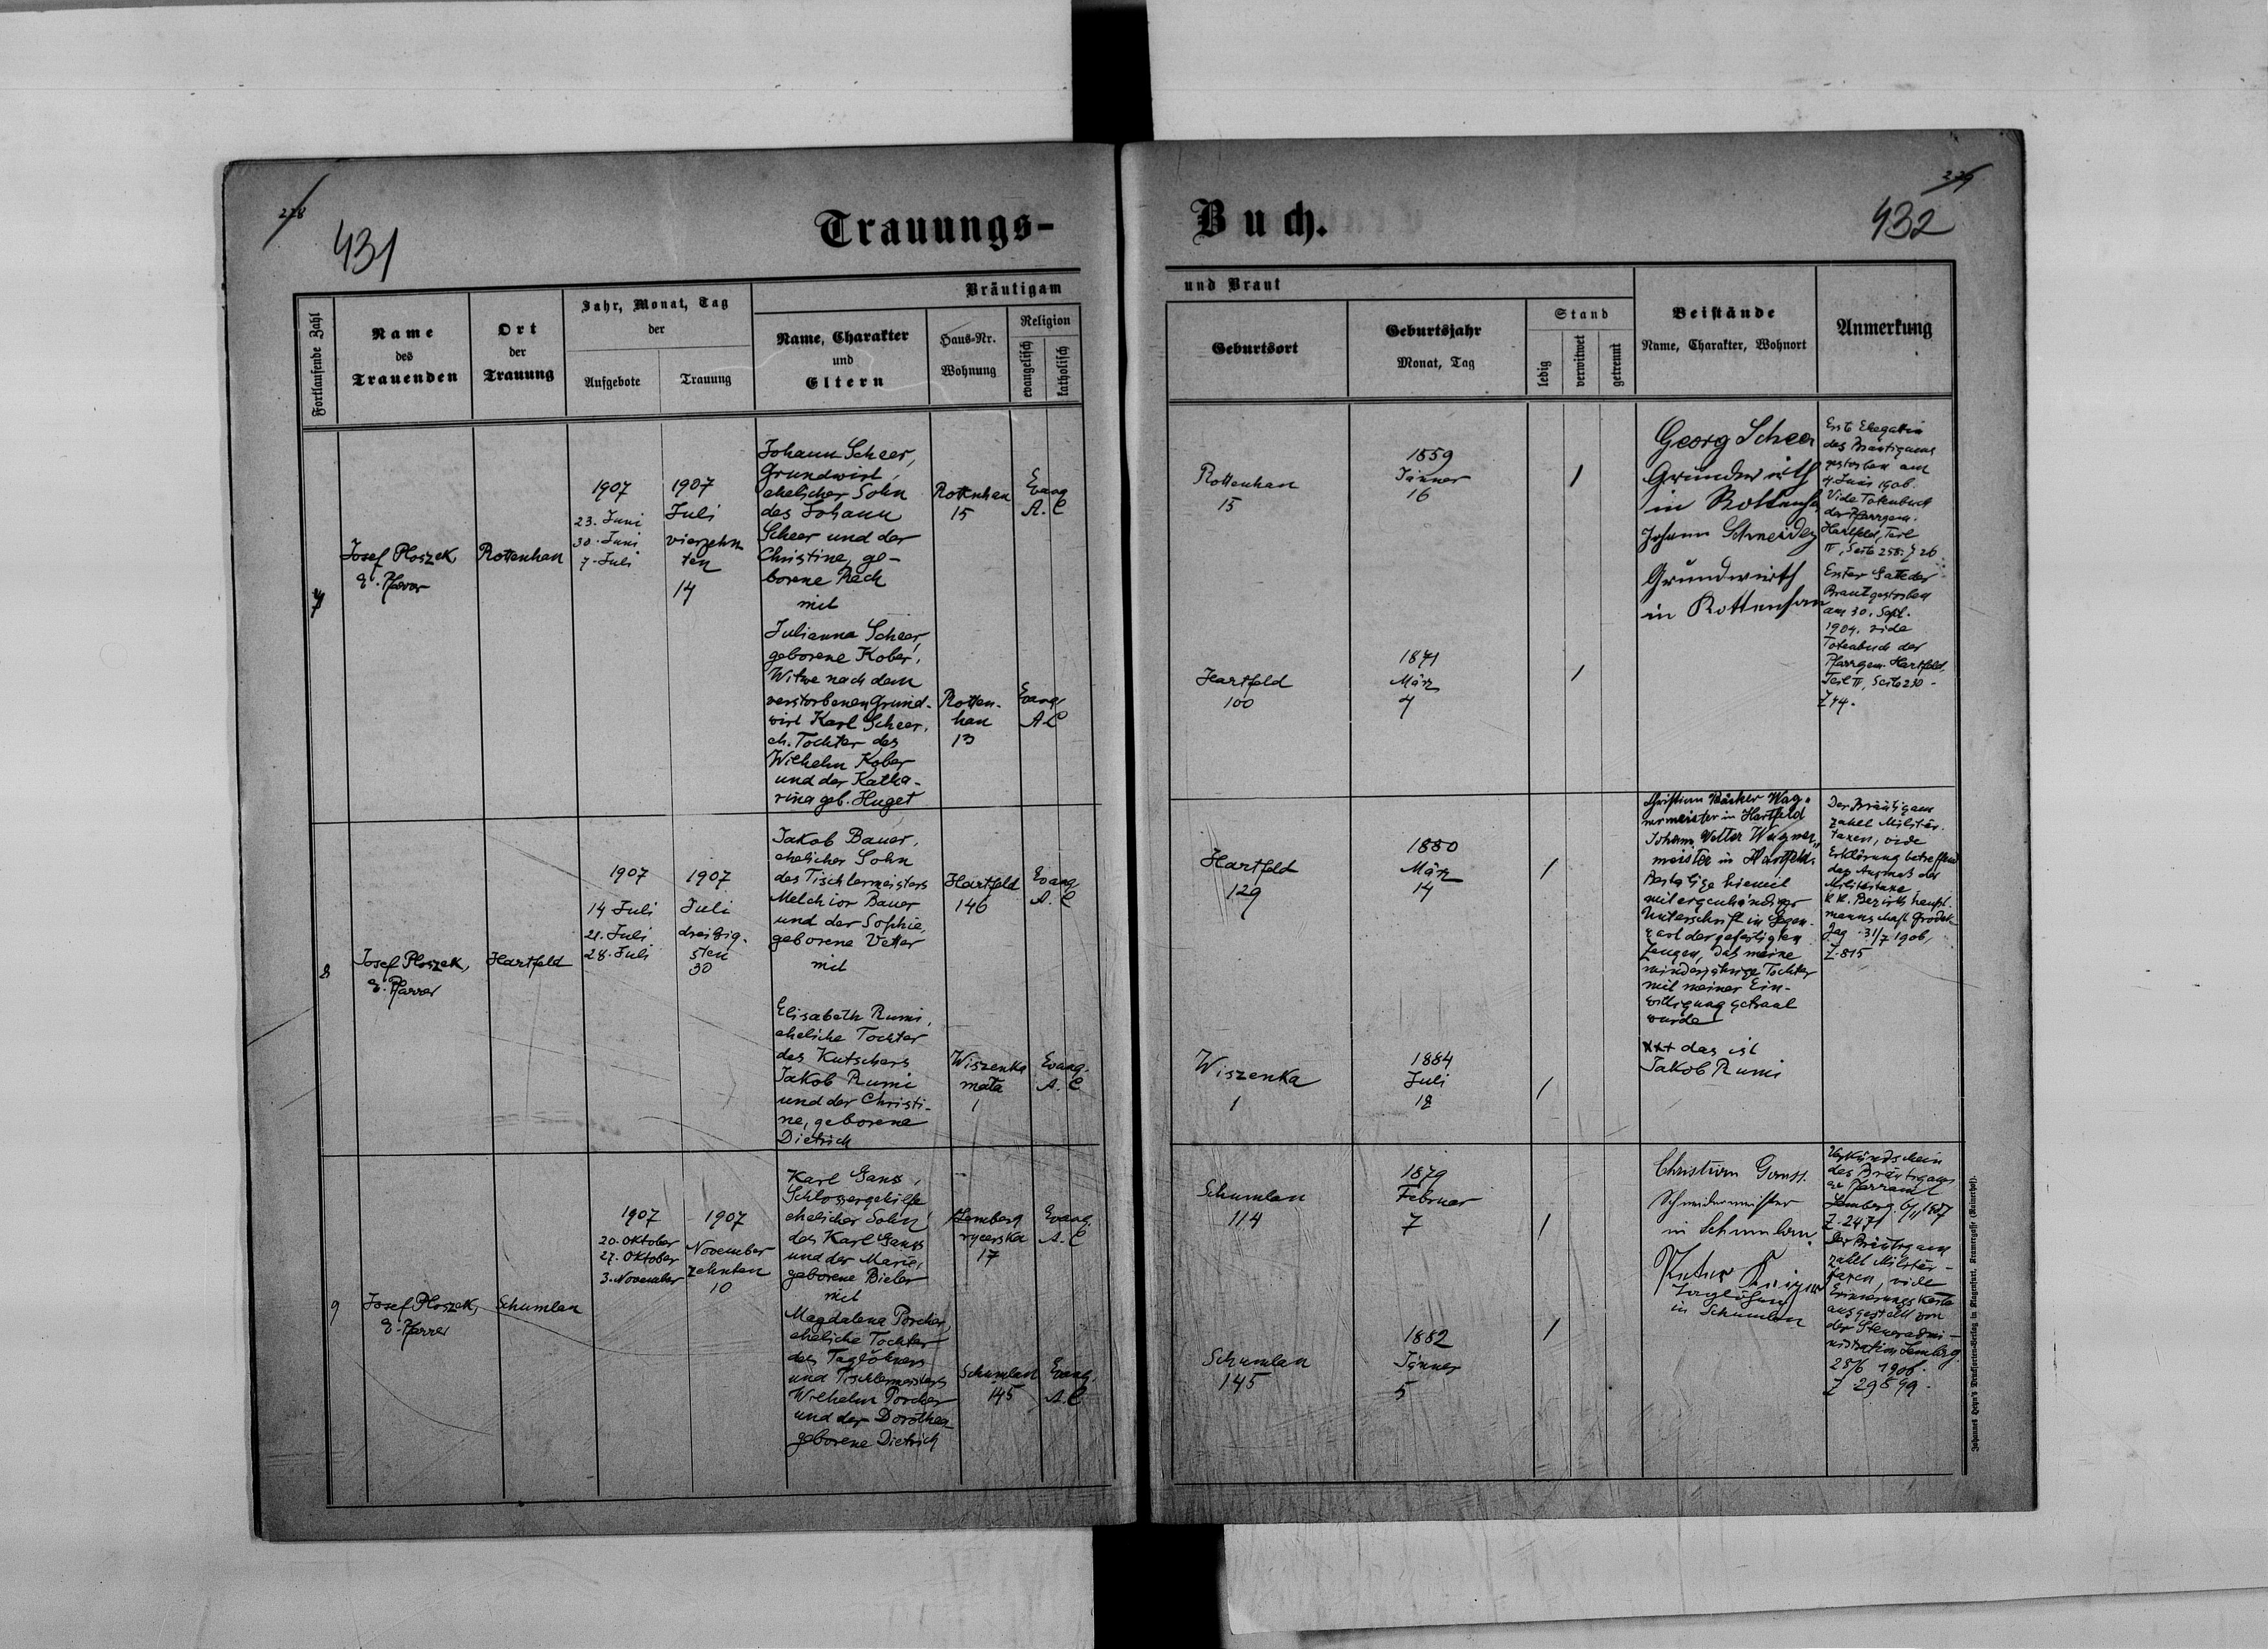 228
431
Trauungs-
Buch.
229
432
Fortlaufende Zahl
Name
des
Trauenden
Ort
der
Trauung
Jahr, Monat, Tag
der
Aufgebote
Trauung
Bräutigam
Name, Charakter
und
Eltern
Haus-Nr.
Wohnung
Religion
evangelisch
katholisch
und Braut
Geburtsort
Geburtsjahr
Monat, Tag
Stand
ledig
verwitwet
getrennt
Beistände
Name, Charakter, Wohnort
Anmerkung
7
Josef Ploszek
e. Pfarrer
Rottenhan
1907
23. Juni
30. Juni
7. Juli
1907
Juli
vierzehn
ten
14
Johann Scheer,
Grundwirt,
ehelicher Sohn
des Johann
Scheer und der
Christine, ge-
borene Rech
mit
Julianna Scheer,
geborene Kober,
Witwe nach dem
verstorbenen Grund-
wirt Karl Scheer,
eh. Tochter des
Wilhelm Kober
und der Katha-
rina geb. Huget
Rottenhan
15
Evang
A. C
Rotten-
han
13
Evang
A C
Rottenhan
15
1859
Jänner
16
/
Hartfeld
100
1871
März
7
/
Georg Scheer
Grundwirth
in Rottenha
Johann Schneider
Grundwirth
in Rottenhan
Erste Ehegattin
des Bräutigams
gestorben am
4. Juni 1906.
Vide Totenbuch
der Pfarrgem.
Hartfeld, Teil
II, Seite 258. Z 26
Erster Gatte der
Braut gestorben
am 30. Sept.
1904. vide
Totenbuch der
Pfarrgem. Hartfeld
Teil II, Seite 230-
Z 74.
8
Josef Ploszek,
e. Pfarrer
Hartfeld
1907
14 Juli
21. Juli
28. Juli
1907
Juli
dreißig-
sten
30
Jakob Bauer,
ehelicher Sohn
des Tischlermeisters
Melchior Bauer
und der Sophie,
geborene Vetter
mit
Elisabeth Rumi,
eheliche Tochter
des Kutschers
Jakob Rumi
und der Christi-
ne, geborene
Dietrich
Hartfeld
146
Evang
A. C
Wiszenka
mała
1
Evang.
A. C
Hartfeld
129
1880
März
14
/
Wiszenka
1
1884
Juli
18
/
Christian Bäcker Wag-
nermeister in Hartfeld
Johann Vetter Wagner
meister in Hartfeld.
Bestätige hiemit
mit eigenhändiger
Unterschrift in Gegen-
wart der gefertigten
Zeugen, daß meine
minderjährige Tochter
mit meiner Ein-
willigung getraut
wurde
+++ das ist
Jakob Rumi
Der Bräutigam
zahlt Militär-
taxen, vide
Erklärung betreffend
das Ausmaß der
Militärtaxe,
k.k. Bezirkshaupt-
mannschaft Grodek
Jag. 31/7 1906,
Z. 815
9
Josef Ploszek,
e. Pfarrer
Schumlau
1907
20. Oktober
27. Oktober
3. November
1907
November
zehnten
10
Karl Ganss,
Schlossergehilfe
ehelicher Sohn
des Karl Ganss
und der Marie,
geborene Bieler
mit
Magdalena Porcher,
eheliche Tochter
des Taglöhners
und Tischlermeisters
Wilhelm Porcher
und der Dorothea
geborene Dietrich
Lemberg
rycerska
17
Evang.
A. C
Schumlau
145
Evang.
A. C
Schumlau
114
1879
Februar
7
/
Schumlau
145
1882
Jänner
5
/
Christian Ganss.
Schneidermeister
in Schumlau.
Taglöhner
in Schumlau
Verkündschein
des Bräutigams
ev. Pfarramt
Lemberg. 6/11 1907
Z. 2471
Der Bräutigam
zahlt Militär-
taxen, vide
Erinnerungskarte
ausgestellt von
der Steueradmi-
nistration Lemberg
28/6 1906.
Z 29599.
Johannes Heyn's Drucksorten-Verlag in Klagenfurt, Kramergasse (Mauerhof).